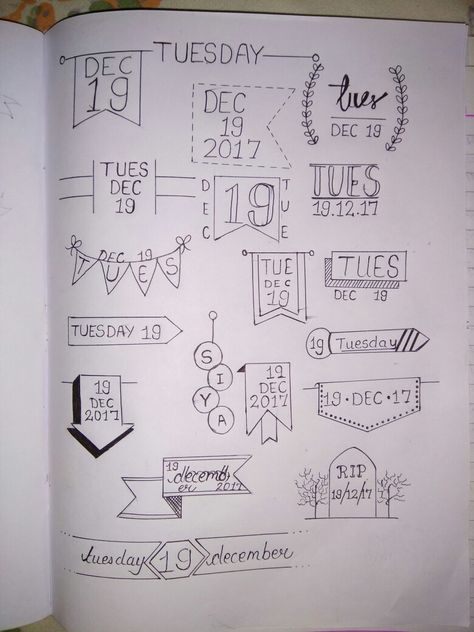 TUESDAY
DEC
19
DEC
19
2017
tues
DEC 19
TUES
DEC
19
DEC
19
TUE
TUES
19.12.17
DEC 19
TUES
TUE
DEC
19
TUES
DEC 19
TUESDAY 19
SIYA
19 Tuesday
19
DEC
2017
19
DEC
2017
19·DEC·17
19
decemb
er 2017
RIP
19/12/17
tuesday 19 december